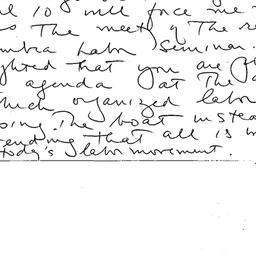 10 will face me
is The meet g of The re
mbra Labor Seminar.
ghted that you are
agenda at The
hich organized labor
oing The boat instea
ending that all is
today's labor movement.